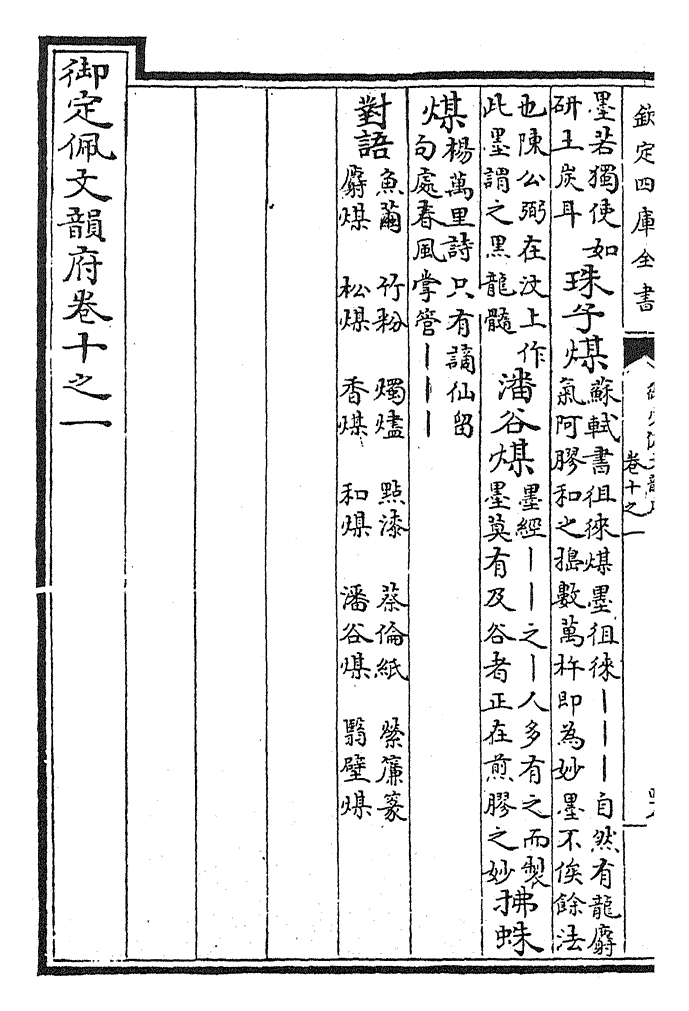 欽定四庫全書
卷十之一
墨若獨使如
研土炭耳
珠子煤
蘇軾書徂徠煤墨徂徠丨丨丨自然有龍麝
氣阿膠和之搗數萬杵即為妙墨不俟餘法
也陳公弼在汶上作
此墨謂之黑龍髓
潘谷煤
墨經丨丨之丨人多有之而製
墨莫有及谷者正在煎膠之妙
拂蛛
煤
楊萬里詩只有謫仙留
句處春風掌管丨丨丨
對語
魚繭 竹粉 燭燼 點漆 蔡倫紙 縈簾篆
麝煤 松煤 香煤 和煤 潘谷煤 翳壁煤
御定佩文韻府卷十之一